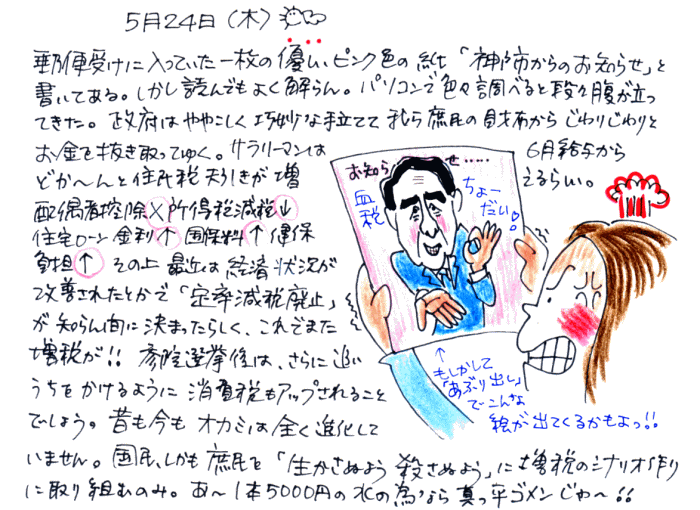 5月24日(木)
郵便受けに入っていた一枚の優しいピンク色の紙「神戸市からのお知らせ」と
書いてある。しかし読んでもよく解らん。パソコンで色々調べると段々腹が立っ
てきた。政府はややこしく巧妙な手立てで我ら庶民の財布からじわりじわりと
お金を抜き取ってゆく。サラリーマンは 6月給与から
どか〜んと住民税天引きが増 えるらしい。
配偶者控除× 所得税減税↓
住宅ローン金利↑ 国保料↑ 健保
負担↑ その上 最近は経済状況が
改善されたとかで「定率減税廃止」
が知らん間に決まったらしく、これでまた
増税が!! 参院選挙後は、さらに追い
うちをかけるように消費税もアップされること
でしょう。昔も今もオカミは全く進化して
いません。国民、しかも庶民を「生かさぬよう殺さぬよう」に増税のシナリオ作り
に取り組むのみ。あ〜1本5000円の水の為なら真っ平ゴメンじゃ〜!!
お知らせ.....
血税
ちょー
だい♡
↑
もしかして
「あぶり出し」
でこんな
絵が出てくるかもよっ!!